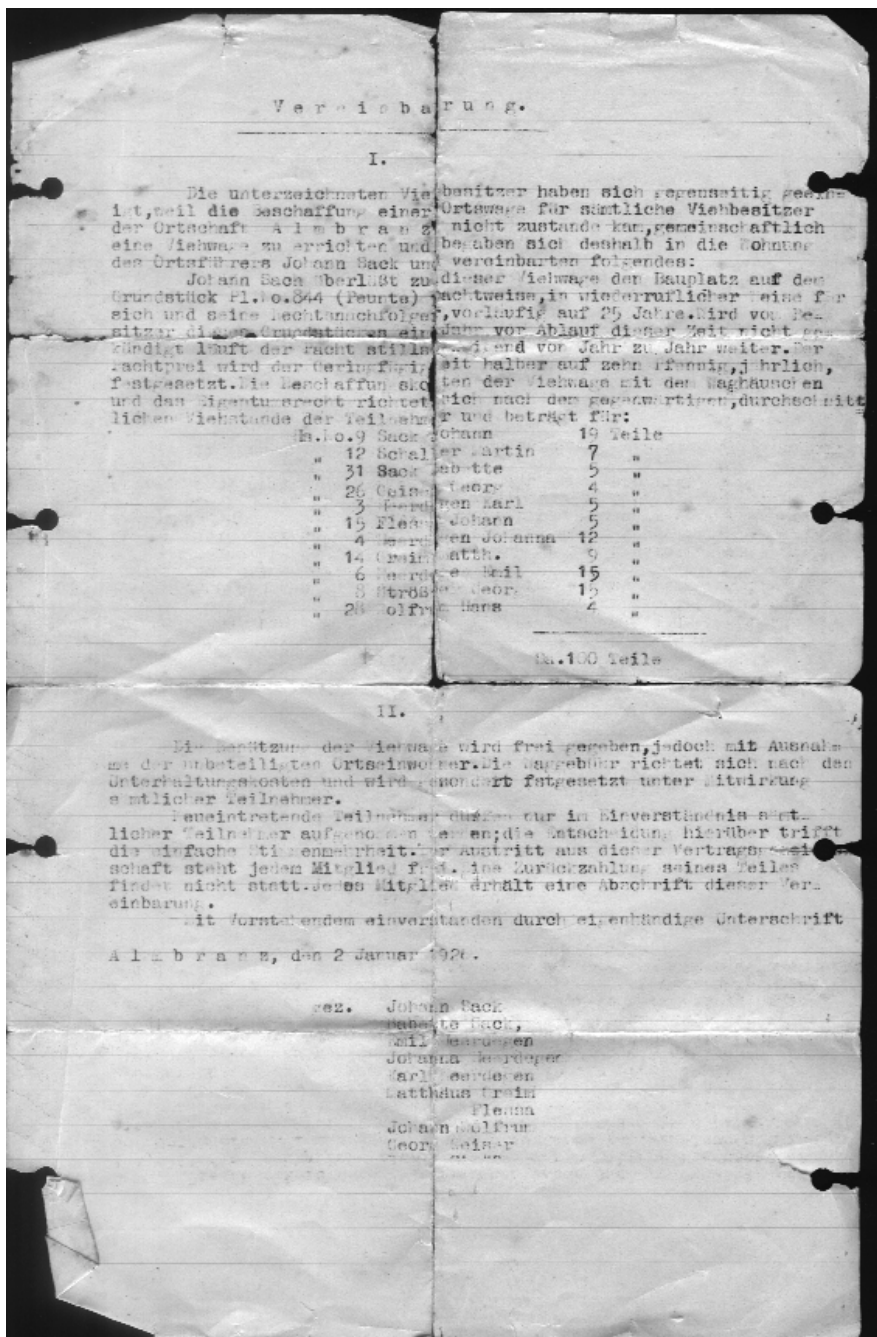 Vereinbarung.
I.
Die unterzeichneten Viehbesitzer haben sich gegenseitig geein-
igt,weil die Beschaffung einer Ortswage für sämtliche Viehbesitzer
der Ortschaft Almbranz nicht zustande kam,gemeinschaftlich
eine Viehwage zu errichten und begaben sich deshalb in die Wohnung
des Ortsführers Johann Sack und vereinbarten folgendes:
Johann Sack überläßt zu dieser Viehwage den Bauplatz auf dem
Grundstück Pl.No.844 (Peunte) pachtweise,in wiederruflicher Weise für
sich und seine Rechtsnachfolger,vorläufig auf 25 Jahre.Wird vom Be-
sitzer dieses Grundstückes ein Jahr vor Ablauf dieser Zeit nicht ge-
kündigt läuft der Pacht stillschweigend von Jahr zu Jahr weiter.Der
Pachtpreis wird der Geringfügigkeit halber auf zehn Pfennig,jährlich,
festgesetzt.Die Beschaffungskosten der Viehwage mit dem Waghäuschen
und das Eigentumsrecht richtet sich nach dem gegenwärtigen,durchschnitt
lichen Viehstande der Teilnehmer und beträgt für:
Hs.No.9 Sack Johann 19 Teile
" 12 Schaller Martin 7 "
" 31 Sack Babette 5 "
" 26 Georg 4 "
" 3 Karl 5 "
" 15 Johann 5 "
" 4 Johanna 12 "
" 14 Greim Matth. 9 "
" 6 Emil 15 "
" 8 Georg 15 "
" 28 Wolfrum Hans 4 "
Sa.100 Teile
II.
Die Benützung der Viehwage wird frei gegeben,jedoch mit Ausnah
me der unbeteiligten Ortseinwohner.Die Waggebühr richtet sich nach den
Unterhaltungskosten und wird gesondert fstgesetzt unter Mitwirkung
sämtlicher Teilnehmer.
Neueintretende Teilnehmer dürfen nur im Einverständnis sämt-
licher Teilnehmer aufgenommen werden;die Entscheidung hierüber trifft
die einfache Stimmenmehrheit.Der Austritt aus dieser Vertrags
schaft steht jedem Mitglied frei.Eine Zurückzahlung seines Teiles
findet nicht statt.Jedes Mitglied erhält eine Abschrift dieser Ver-
einbarung.
Mit Vorstehendem einverstanden durch eigenhändige Unterschrift
Almbranz, den 2 Januar 1926.
gez. Johann Sack
Babette Sack,
Emil
Johanna
Karl
Matthäus Greim
Johann Wolfrum
Georg